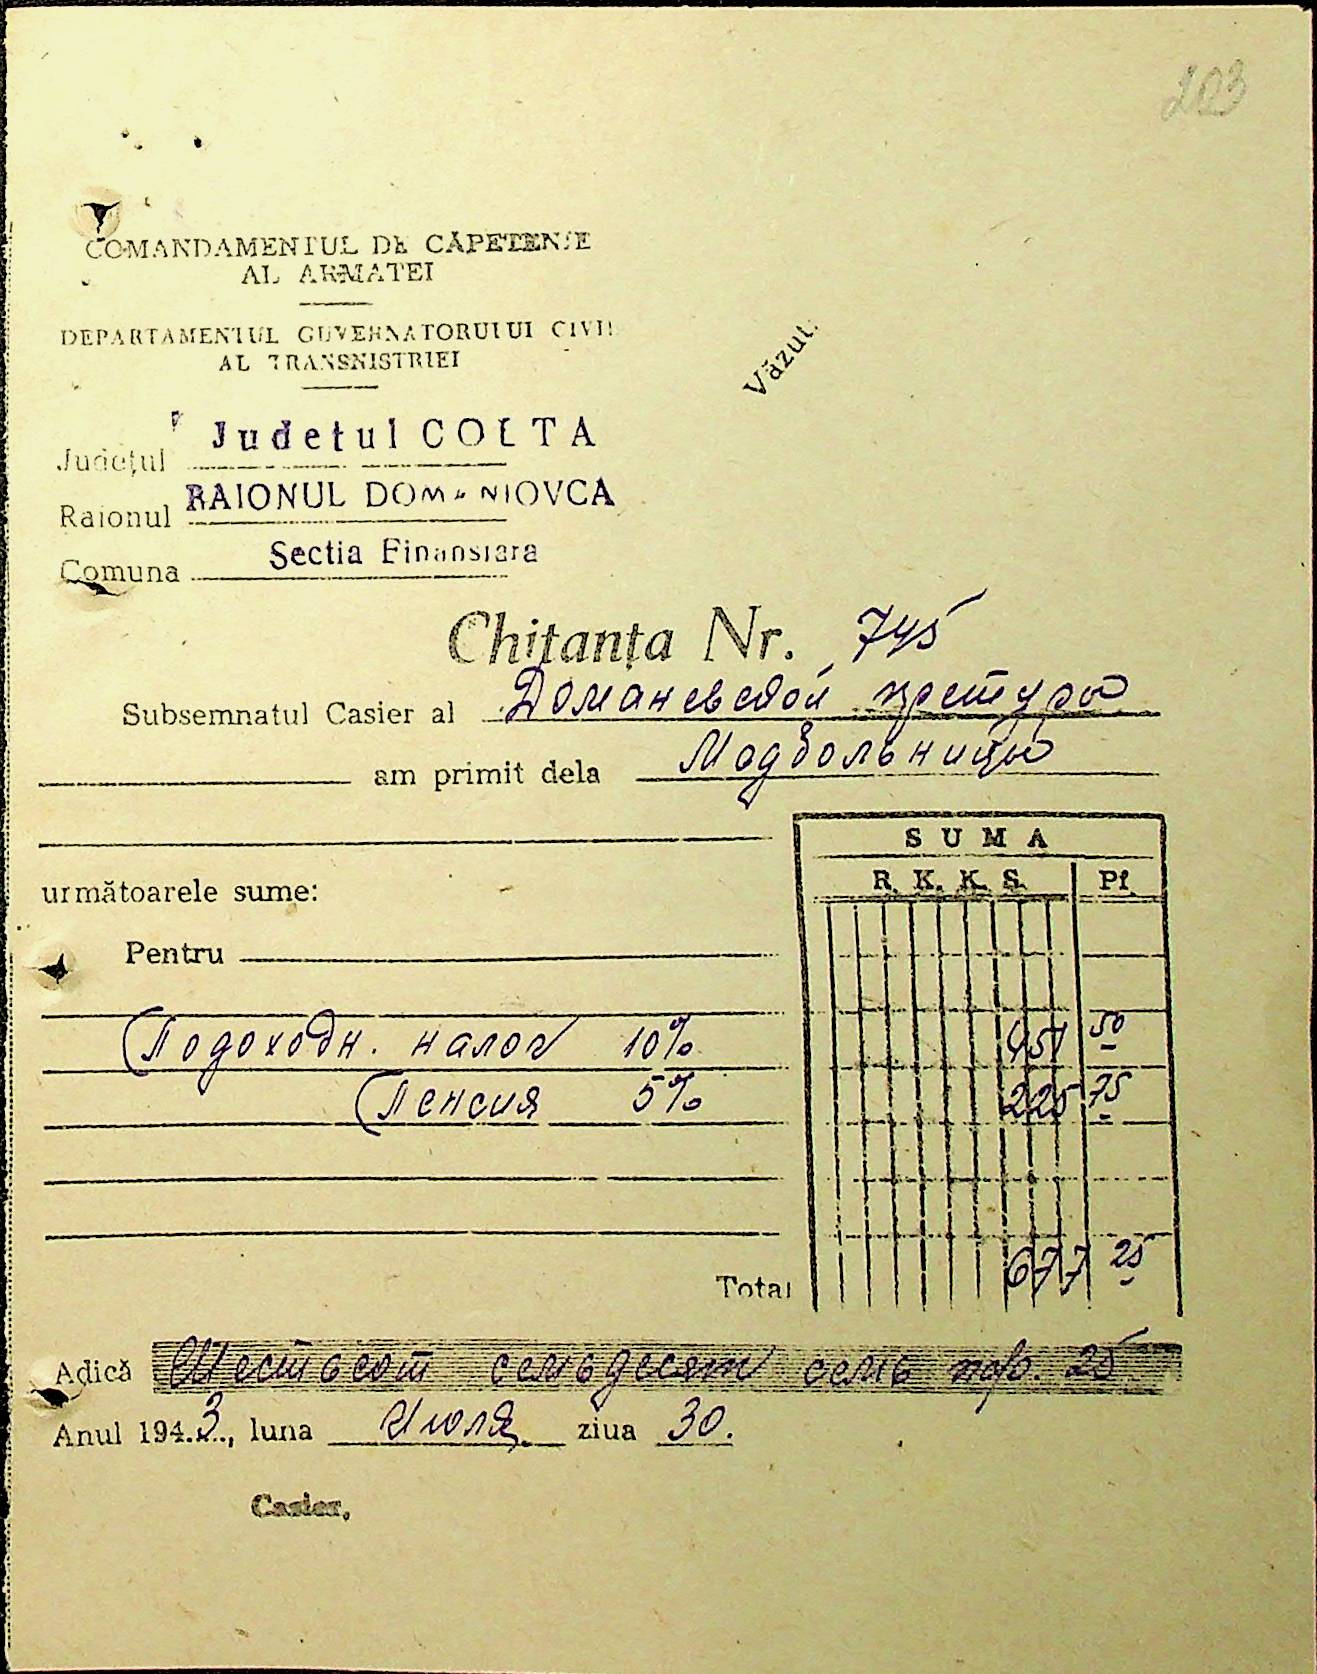 203
COMANDAMENTUL DE CĂPETENIE
AL ARMATEI
DEPARTAMENTUL GUVERNATORULUI CIVIL
AL TRANSNISTRIEI
Văzut:
Județul Judetul COLTA
Raionul RAIONUL DOMANIOVCA
Comuna Sectia Finansiara
Chitanța Nr. 745
Subsemnatul Casier al Доманевской претуры
am primit dela Медбольницы
SUMA
următoarele sume: R. K. K. S. Pf.
Pentru
Подоходн. налог 10% 451 50
Пенсия 5% 225 75
Total 677 25
Adică Шестьсот семьдесят семь пф. 25
Anul 194 3, luna Июля ziua 30.
Casier,